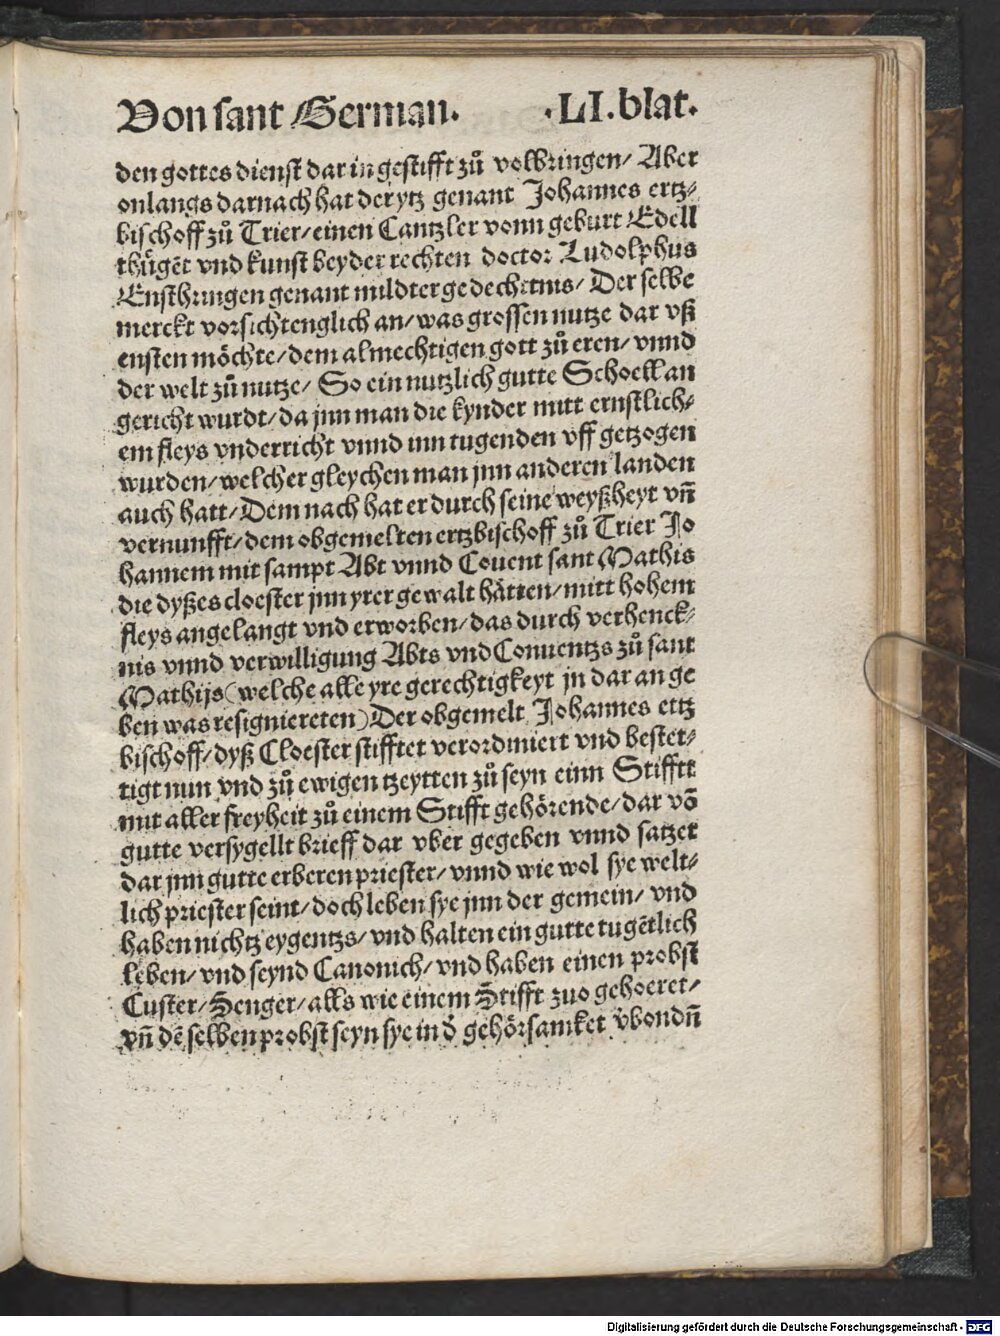 Von sant German. .LI.blat.
den gottes dienst dar in gestifft zů volbringen/ Aber
onlangs darnach hat der ytz genant Johannes ertz⸗
bischoff zů Trier/ einen Cantzler vonn geburt Edell
thügẽt vnd kunst beyder rechten doctor Ludolphus
Ensthringen genant mildter gedechtnis/ Der selbe
merckt vorsichtenglich an/ was grossen nutze dar vß
ensten möchte/ dem almechtigen gott zů eren/ vnnd
der welt zů nutze/ So ein nutzlich gutte Schoell an
gericht wurdt/ da jnn man die kynder mitt ernstlich⸗
em fleys vnderricht vnnd inn tugenden vff getzogen
wurden/ welcher gleychen man jnn anderen landen
auch hatt/ Dem nach hat er durch seine weyßheyt vñ
vernunfft/ dem obgemelten ertzbischoff zů Trier Jo
hannem mit sampt Abt vnnd Couent sant Mathis
die dyßes cloester jnn yrer gewalt hätten/ mitt hohem
fleys angelangt vnd erworben/ das durch verhenck⸗
nis vnnd verwilligung Abts vnd Conuentzs zů sant
Mathijs (welche alle yre gerechtigkeyt jn dar an ge
ben was resigniereten) Der obgemelt Johannes ertz
bischoff/ dyß Cloester stifftet verordiniert vnd bestet⸗
tigt nun vnd zů ewigen tzeytten zů seyn einn Stifftt
mit aller freyheit zů einem Stifft gehörende/ dar võ
gutte versygellt brieff dar vber gegeben vnnd satzet
dar jnn gutte erberen priester/ vnnd wie wol sye welt⸗
lich priester seint/ doch leben sye jnn der gemein/ vnd
haben nichtz eygentzs/ vnd halten ein gutte tugẽtlich
leben/ vnd seynd Canonich/ vnd haben einen probst
Custer/ Senger/ alls wie einem Stifft zuo gehoeret/
vñ dẽ selben probst seyn sye in d̕ gehörsamket v̈bondñ
Digitalisierung gefördert durch die Deutsche Forschungsgemeinschaft - DFG